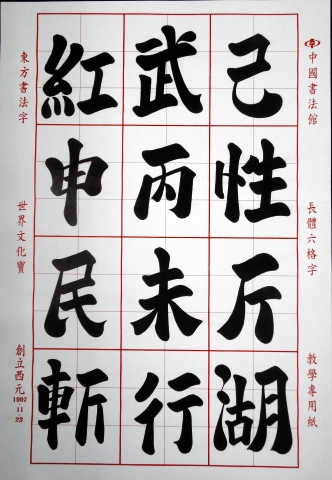 中國書法館
長體六格字
教學專用紙
己性斤湖
武丙未行
紅申民斬
東方書法字
世界文化寶
創立西元1997·11·23